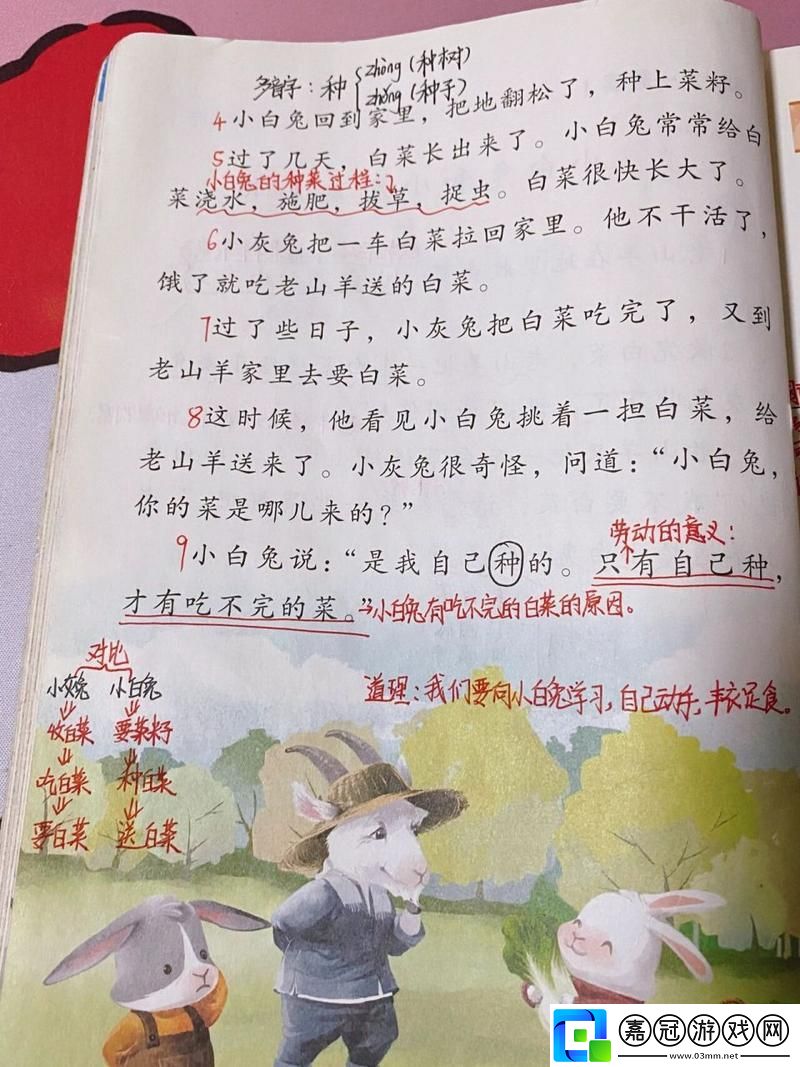 多音字：种 zhòng（种树）
zhǒng（种子）
4小白兔回到家里，把地翻松了，种上菜籽。
5过了几天，白菜长出来了。小白兔常常给白
小白兔的种菜过程：
菜浇水，施肥，拔草，捉虫。白菜很快长大了。
6小灰兔把一车白菜拉回家里。他不干活了，
饿了就吃老山羊送的白菜。
7过了些日子，小灰兔把白菜吃完了，又到
老山羊家里去要白菜。
8这时候，他看见小白兔挑着一担白菜，给
老山羊送来了。小灰兔很奇怪，问道：“小白兔，
你的菜是哪儿来的？”
劳动的意义：
9小白兔说：“是我自己种的。只有自己种，
才有吃不完的菜。”→小白兔有吃不完的白菜的原因。
对比
小灰兔 小白兔
收白菜 要菜籽
吃白菜 种白菜
要白菜 送白菜
道理：我们要向小白兔学习，自己动手，丰衣足食。
嘉冠游戏网
www.03mm.net